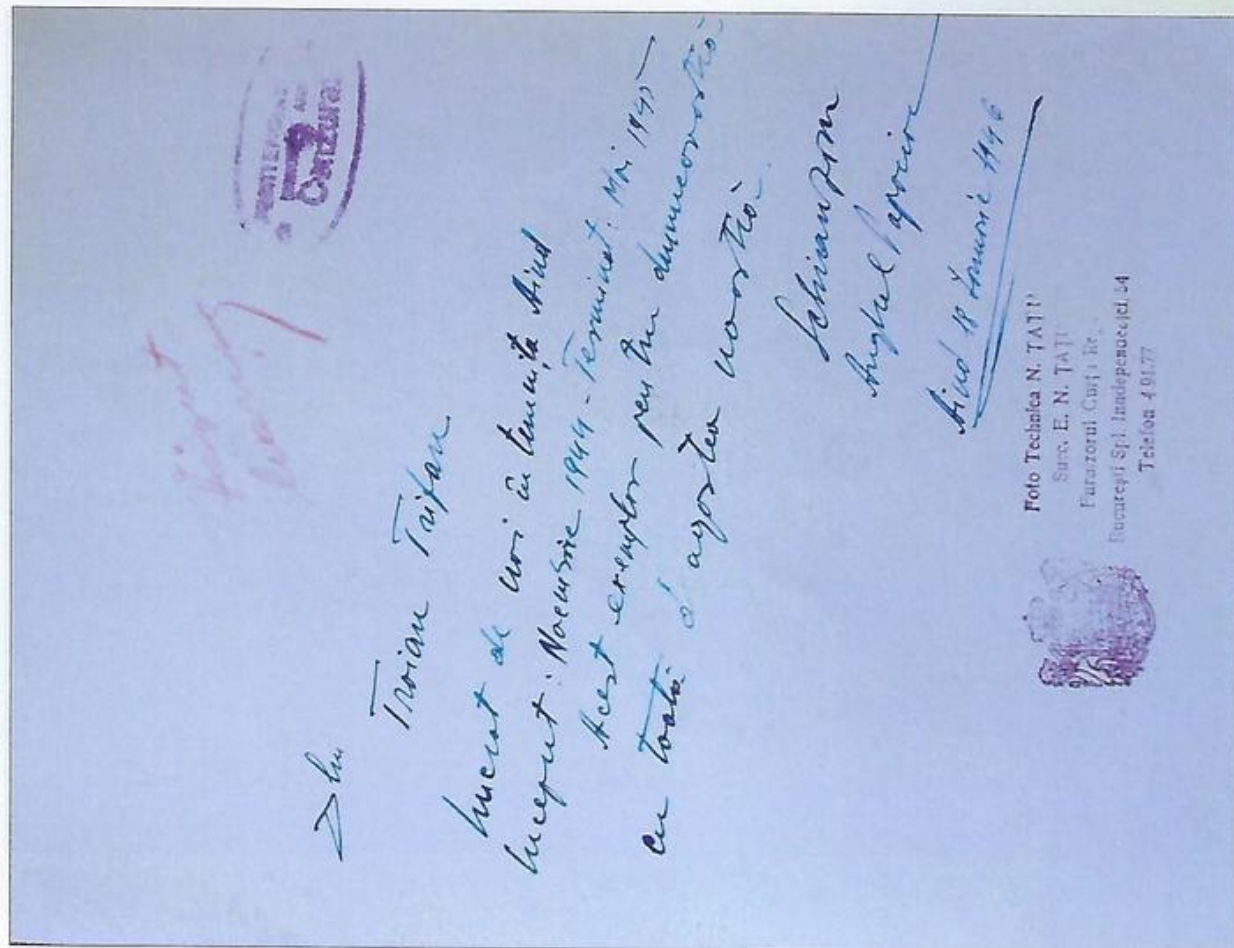 PENITENCIARUL AIUD
Cenzurat
Dlui
Traian Trifan
Lucrat de noi în temnița Aiud
Început: Noembrie 1944 - Terminat: Mai 1945
Acest exemplar pentru dumneavoastră
cu toată dragostea noastră.
Anghel Papacioc
Aiud 18 Ianuarie 1946
Foto Technica N. TAȚU
Succ. E. N. TAȚU
Furnizorul Curții Re
București Spl Independenței 54
Telefon 4.91.77